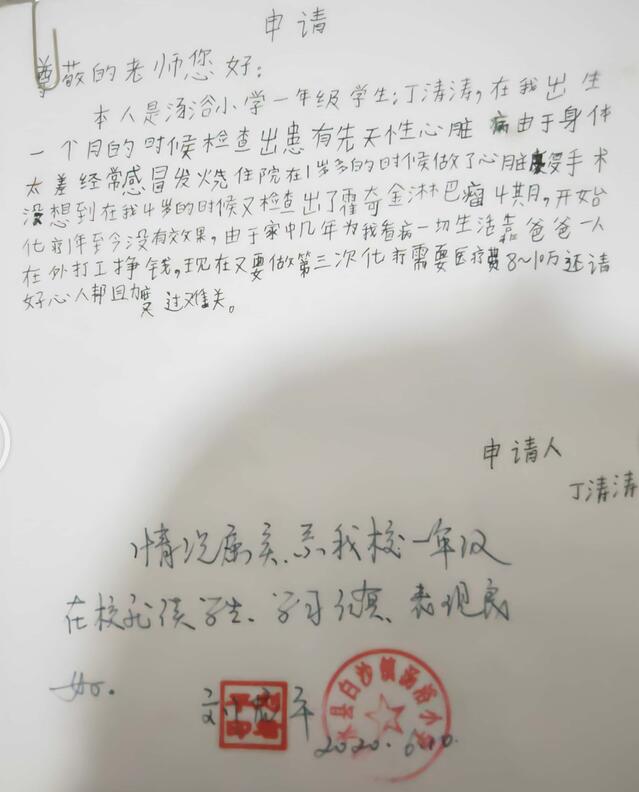 申请
尊敬的老师您好：
本人是汤浴小学一年级学生：丁清涛，在我出生
一个月的时候检查出患有先天性心脏病由于身体
太差经常感冒发烧住院在1岁多的时候做了心脏手术
没想到在我4岁的时候又检查出了霍奇金淋巴瘤4共月，开始
化疗1年至今没有效果，由于家中几年为我看病一切生活靠爸爸一人
在外打工挣钱，现在又要做第三次化疗需要医疗费8~10万还请
好心人帮且加 过难关。
申请人
丁清涛
情况属实，系我校一年级
在校就读学生、学习认真、表现良
好。
2020.6.10.
县白沙镇汤浴小学